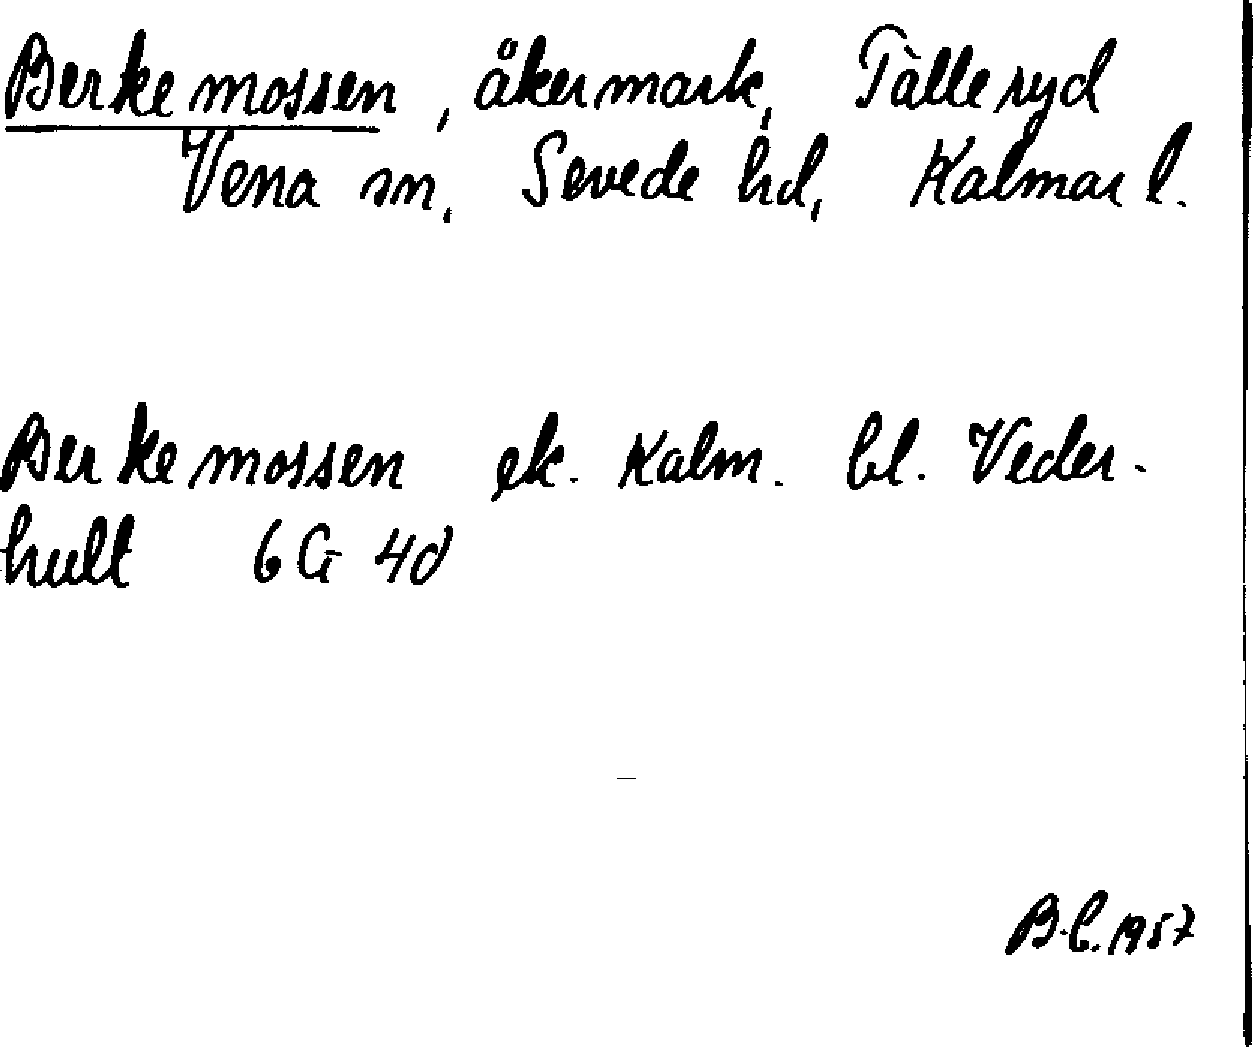 Berkemossen, åkermark, Tålleryd
Vena sn, Sevede hd, Kalmar l.
Berkemossen ek. Kalm. bl. Veder-
hult 6 G 4d
B.l. 1957